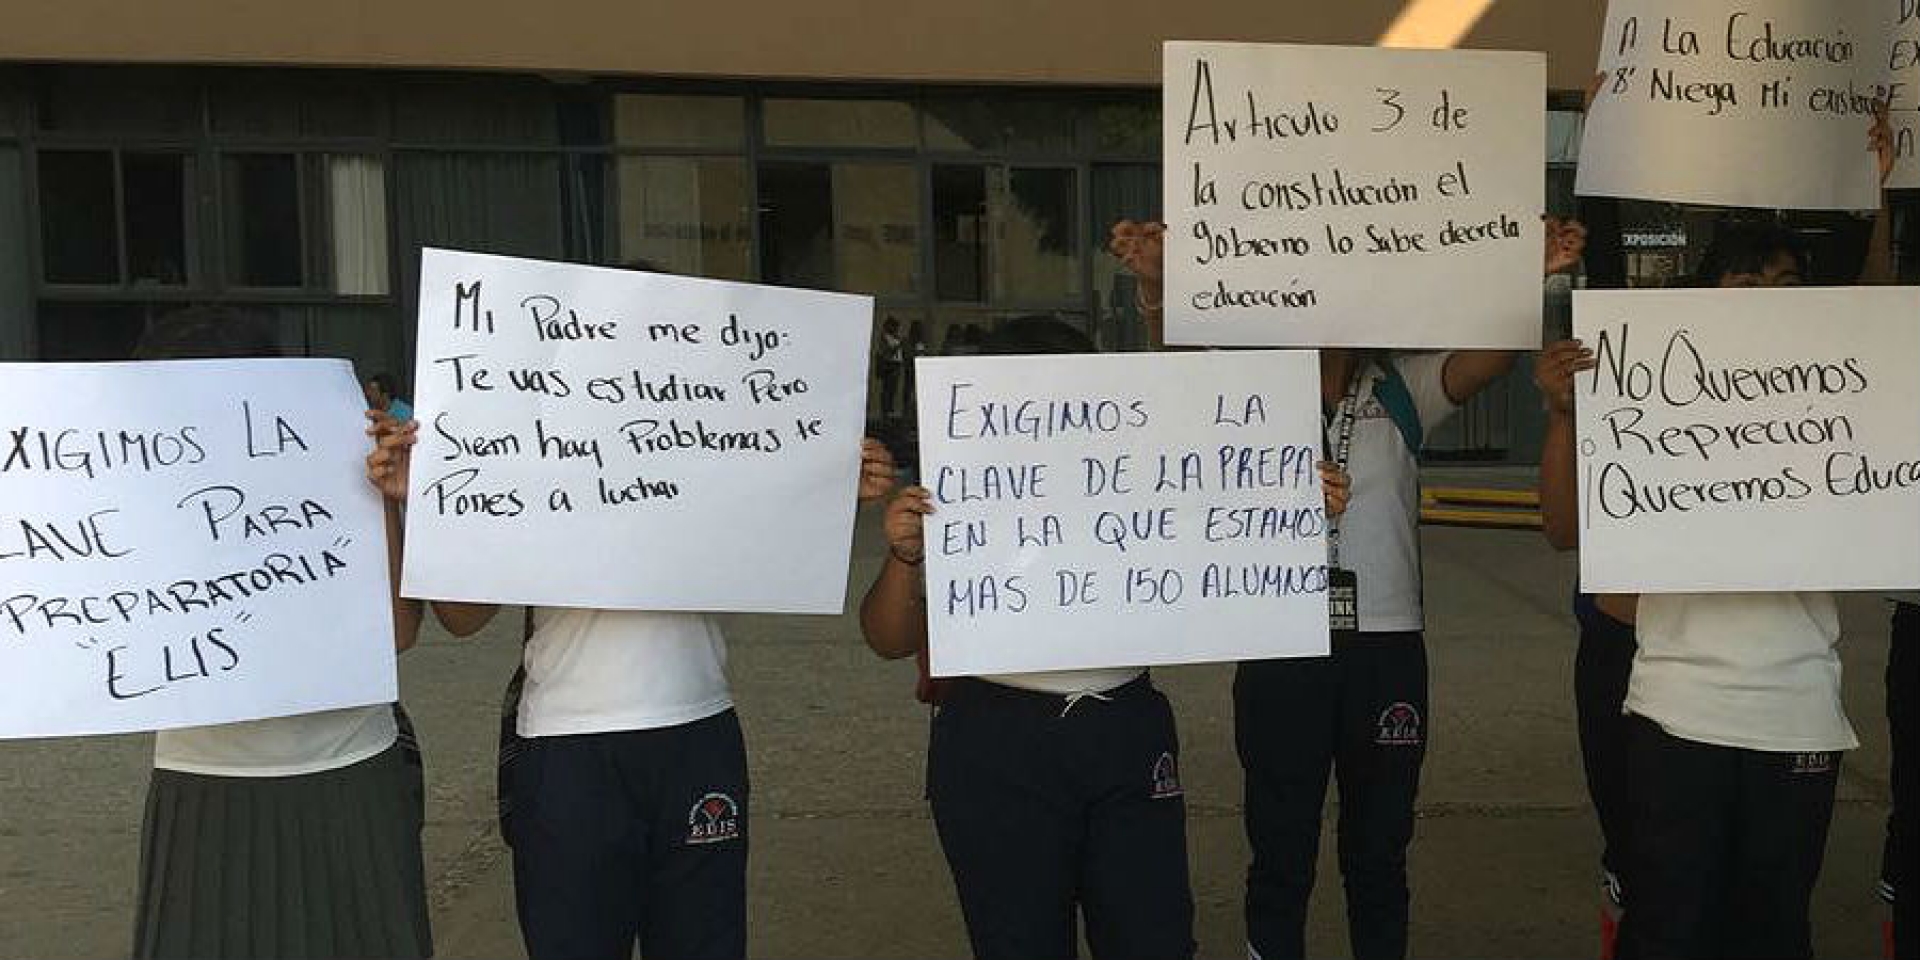 XIGIMOS LA
LAVE PARA
PREPARATORIA"
"ELIS"
Mi Padre me dijo:
Te vas estudiar Pero
Siem hay Problemas te
Pones a luchar
EXIGIMOS LA
CLAVE DE LA PREPA
EN LA QUE ESTAMOS
MAS DE 150 ALUMNOS
Articulo 3 de
la constitución el
gobierno lo Sabe decreta
educación
A La Educación
Niega Mi
EXPOSICIÓN
No Queremos
Repreción
¡Queremos Educa
ELIS
ELIS
ELIS
INK